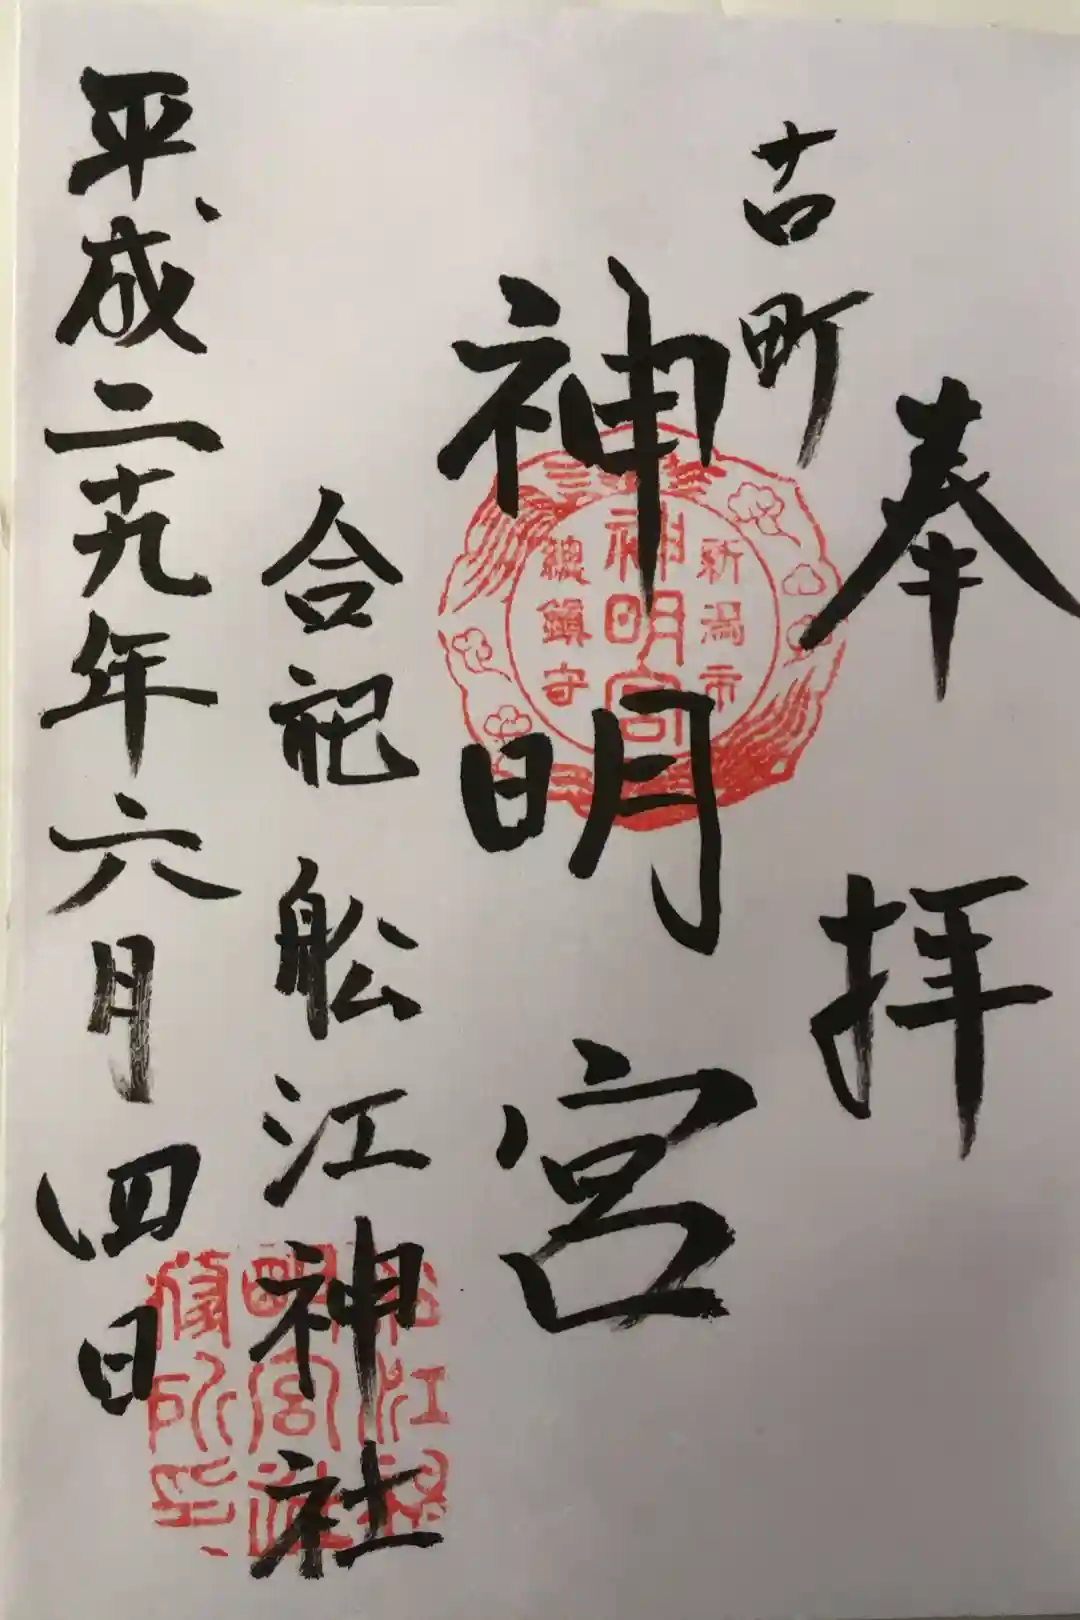 奉拝
古町
神明宮
新潟市
神明宮
総鎮守
合祀 船江神社
平成二十九年六月四日